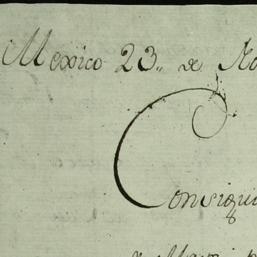 Mexico 23,, de No
Consigui